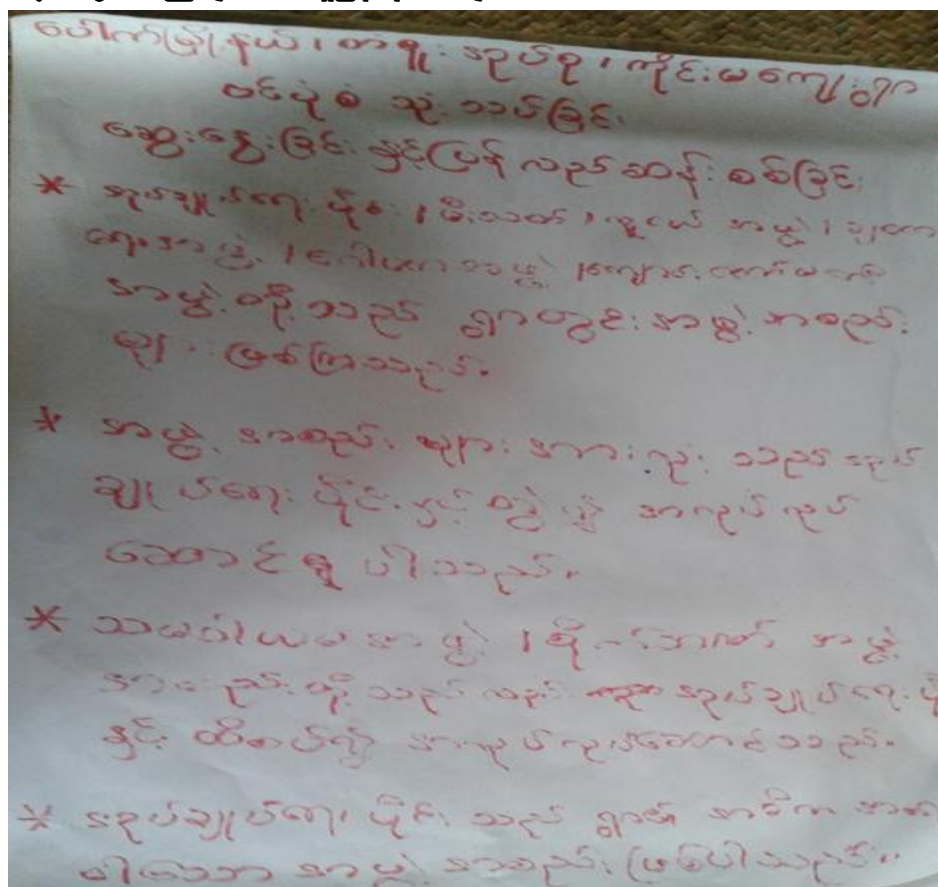 ပေါက်မြို့နယ်၊ တရူးအုပ်စု၊ ကိုင်းမကျေးရွာ
ဝင်ပုံစံ သုံးသပ်ခြင်း
ဆွေးနွေးခြင်း နှင့် ပြန်လည်ဆန်းစစ်ခြင်း
* အုပ်ချုပ်ရေးပိုင်း၊ မီးသတ်၊ လူငယ် အဖွဲ့၊
ရေးအဖွဲ့၊
အဖွဲ့တို့သည် ရွာတွင်း အဖွဲ့အစည်း
များ ဖြစ်ကြသည်။
* အဖွဲ့အစည်းများ အားလုံးသည် အုပ်
ချုပ်ရေးပိုင်းနှင့် တွဲ၍ အလုပ်လုပ်
ဆောင်ရွပါသည်။
* သမဝါယမအဖွဲ့၊ အဖွဲ့
အစည်းတို့သည်လည်း အုပ်ချုပ်ရေးပို
နှင့် ထိစပ်၍ အလုပ်လုပ်ဆောင်သည်။
* အုပ်ချုပ်ရေးပိုင်းသည် ရွာ၏ အဓိက အ
ပါသော အဖွဲ့အစည်း ဖြစ်ပါသည်။